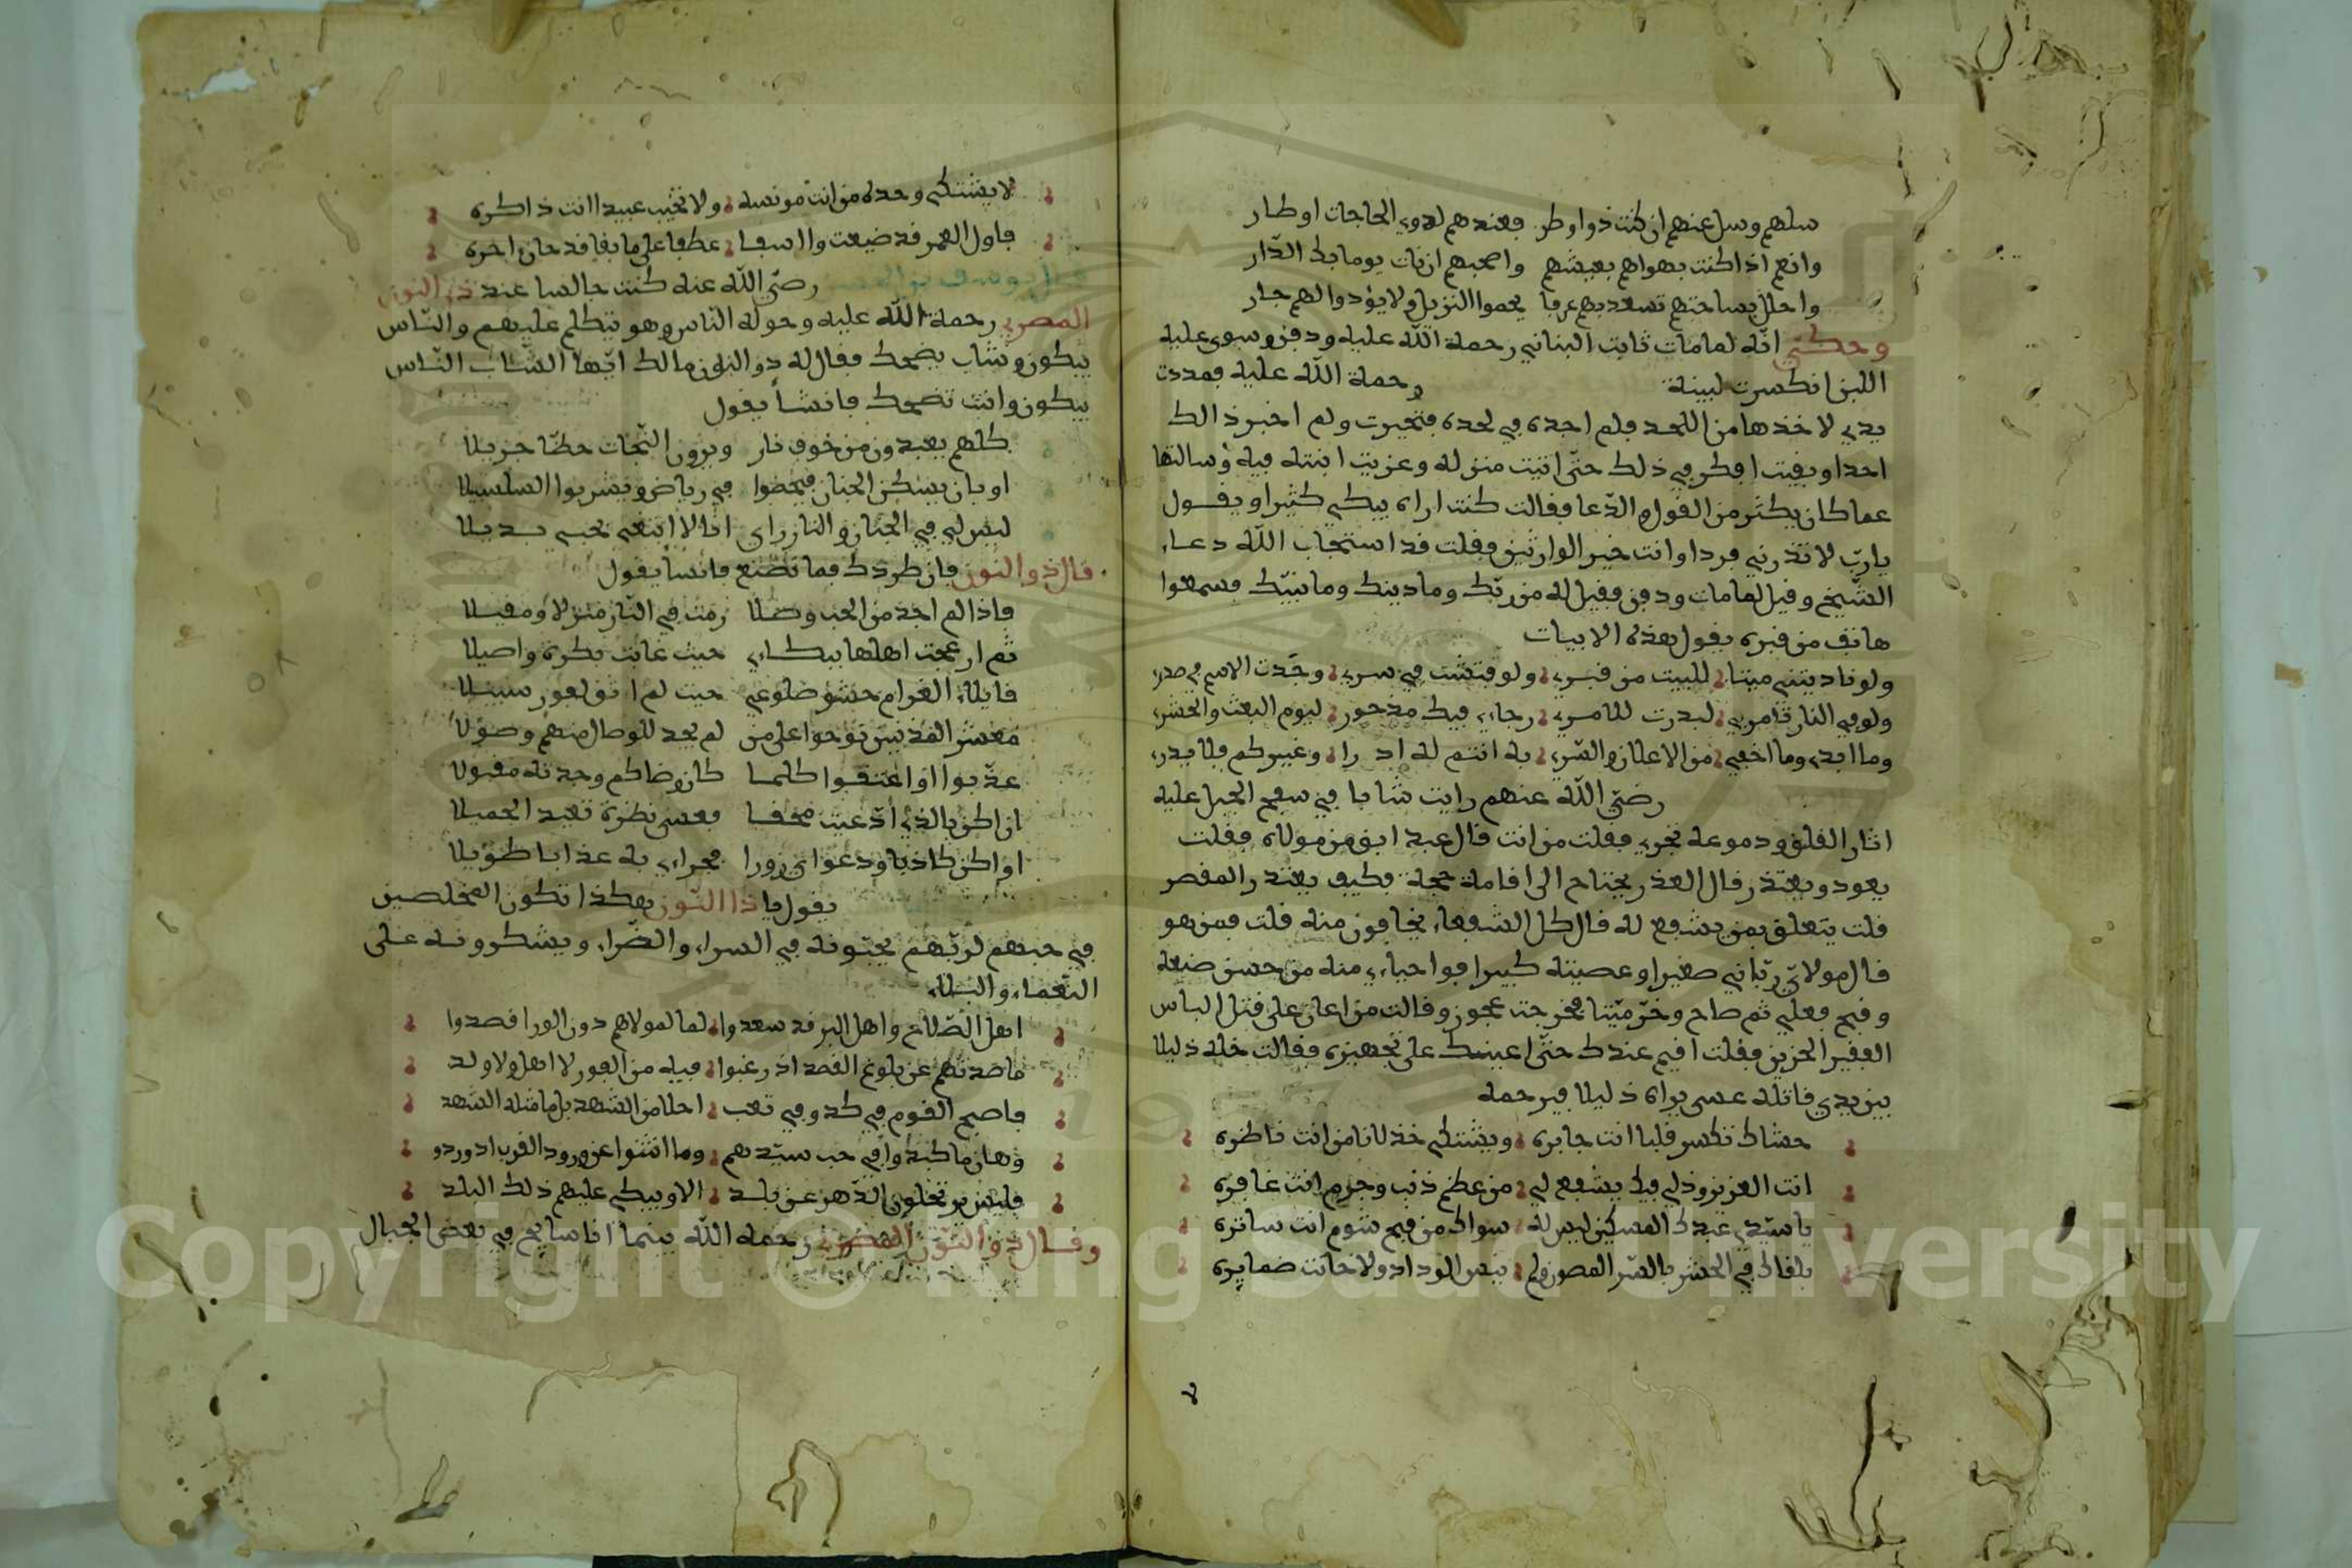 سلهم وسل عنهم ان كنت ذوا وطر فعندهم لذوي الحاجات اوطار
وانع اذا كنت بهواهم بعيشهم واصحبهم ان نات يوما بك الدّار
واحلل بساحتهم تسعد بهم عرفا يحموا النزيل ولا يؤذوا لهم جار
وحكي انّه لما مات ثابت البناني رحمة اللّه عليه ودفن وسوي عليه
اللبن انكسرت لبينة رحمة اللّه عليه فمددت
يدي لاخذها من اللحد فلم اجده في لحده فتحيرت ولم اخبر ذالك
احدا وبقيت افكر في ذلك حتّى اتيت منزله وعزيت ابنته فيه وسالتها
عما كان يكثر من القول والدّعا فقالت كنت اراه يبكي كثيرا ويقول
يا ربّ لا تذرني فردا وانت خير الوارثين فقلت قد استجاب اللّه دعاء
الشّيخ وقيل لما مات ودفن فقيل له من ربّك وما دينك وما نبيّك فسمعوا
هاتف من قبره يقول هذه الابيات
ولو ناديتني ميتا للبيت من قبري ولو فتشت في سري وجدت الاسم في صدري
ولو في النار تامرني لبدرت للامري رجاءي فيك مذخور ليوم البعث والحشر
وما ابدي وما اخفي من الاعلان والسّر به انتم له ادرا وغيركم فلا يدري
رضّي اللّه عنهم رايت شابا في سفح الجبل عليه
اثار القلق ودموعه تجري فقلت من انت قال عبد ابق من مولاه فقلت
يعود ويعتذر قال العذر يحتاج الى اقامة حجة فكيف يعتذر المقصر
قلت يتعلق بمن يشفع له قال كل الشفعاء يخافون منه قلت فمن هو
قال مولاي ربّاني صغيرا وعصيته كبيرا فواحياءي منه من حسن صنعه
وقبح فعلي ثم صاح وخرّ ميّتا فخرجت عجوز وقالت من اعان على قتل الباس
الفقير الحزين فقلت اقيم عندك حتّى اعينك على تجهيزه فقالت خله ذليلا
بين يدي قاتله عسى يراه ذليلا فيرحمه
حشاك تكسر قلبا انت جابره ويشتكي خذلانا من انت ناظره
انت العزيز وذلي فيك يشفع لي من عظم ذنب وجرم انت غافره
يا سيّدي عبدك المسكين ليس له سواك من قبح شوم انت ساتره
يلقاك في الحشر بالسّر المصون ولم ينس الوداد ولا خانت ضمايره
لا يشتكي وحده من انت مونسه ولا تخيب عبيدا انت ذاكره
فاول العمر قد ضيعت وااسفا عطفا على ما بقا قد حان اخره
رضّي اللّه عنه كنت جالسا عند ذي النون
المصري رحمة اللّه عليه وحوله النّاس وهو يتكلم عليهم والنّاس
يبكون وشاب يضحك فقال له ذو النون مالك ايّها الشّاب النّاس
يبكون وانت تضحك فانشأ يقول
كلهم يعبدون من خوف نار ويرون النّجات حظّا جزيلا
او بان يسكن الجنان فيحضوا في رياض ويشربوا السلسبيلا
ليس لي في الجنان والنار راي انا لا ابتغي بحبي بديلا
قال ذو النون فان طردك فما تصنع فانشأ يقول
فاذا لم اجد من الحب وصلا رمت في النّار منزلا ومقيلا
ثم ازعجت اهلها ببكاءي حيث غابت بكرة واصيلا
قايلا الغرام حشو ضلوعي حيث لم القوز سبيلا
معشر المذنبين نوحوا على من لم يجد للوصال منهم وصولا
عذّبوا او اعتقوا كلما كان رضاكم وجدته مقبولا
ان اكن بالذي ادّعيت محقا فعسى نظرة تعيد الجميلا
او اكن كاذبا ودعواي زورا فجزاءي به عذابا طويلا
يقول يا ذا النّون هكذا تكون المخلصين
في حبهم لربّهم يحبّونه في السراء والضّراء ويشكرونه على
النّعماء والبلاء
اهل الصّلاح واهل البر قد سعدوا لما لمولاهم دون الورا قصدوا
ما صدّهم عن بلوغ القصد اذ رغبوا فيه من الفوز لا اهل ولا ولد
فاصبح القوم في كد وفي تعب احلا من الشهد بل ما مثله الشهد
وهان ما كبدوا في حب سيّدهم وما انثنوا عن ورود القرب اذ وردو
فليس يرتحلون الدّهر عن بلد الا ويبكي عليهم ذلك البلد
وقال ذو النّون المصري رحمه اللّه بينما انا سايح في بعض الجبال
Copyright © King Saud University